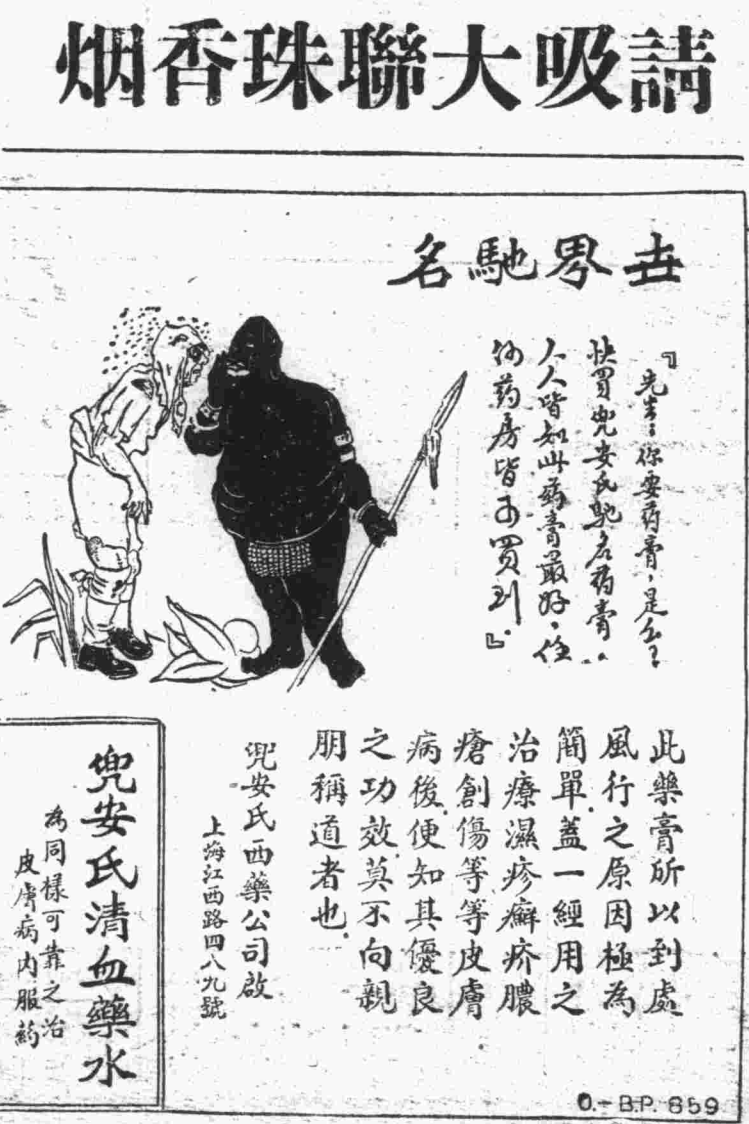 請吸大聯珠香烟
世界馳名
『先生：你要药膏，是么？
快買兜安氏馳名药膏..
人人皆知此药膏最好，任
何药房皆可買到』.
此藥膏所以到處
風行之原因極為
簡單蓋一經用之
治療濕疹癬疥膿
瘡創傷等等皮膚
病後便知其優良
之功效莫不向親
朋稱道者也.
兜安氏西藥公司啟
上海江西路四八九號
兜安氏清血藥水
為同樣可靠之治
皮膚病内服药
O.-B.P. 659